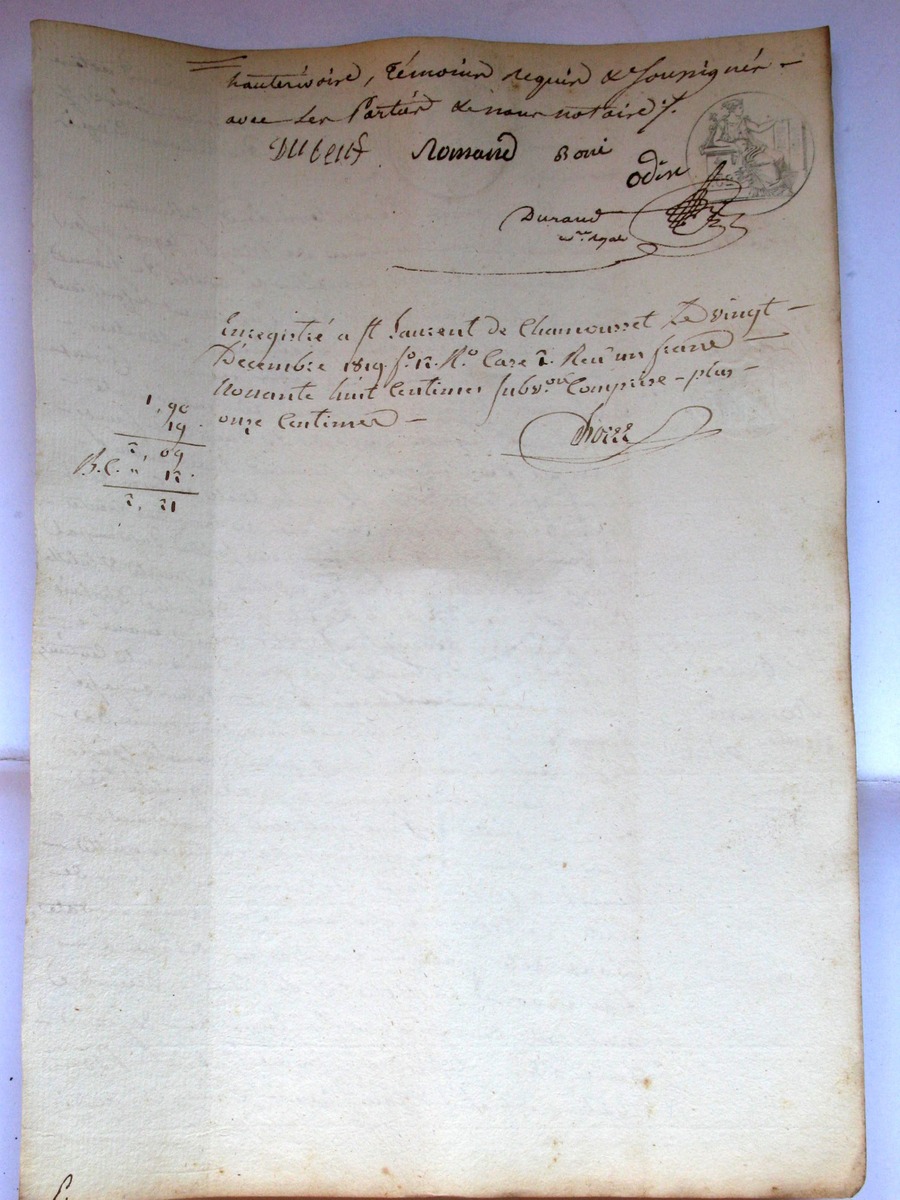 hauterivoire, témoins requis & soussignés
avec les Parties & nous notaire %.
Dubeuf Romand Boui
odin
Durand
nre. royal
Enregistré a st Laurent de Chamousset Le vingt
Décembre 1819 fo. 12. Ro. Case 2. Reçu un franc
Nonante huit Centimes subvon. Comprise plus
onze Centimes
1,90
19
2,09
B.C. " 12
2,21